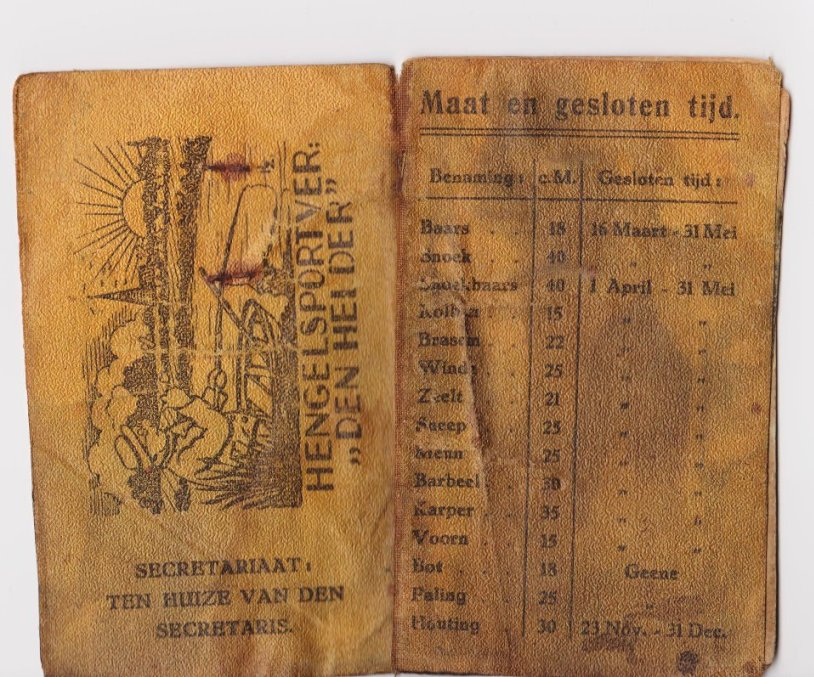 HENGELSPORTVER:
„DEN HELDER”
SECRETARIAAT:
TEN HUIZE VAN DEN
SECRETARIS.
Maat en gesloten tijd.
Benaming: c.M. Gesloten tijd:
Baars . . 18 16 Maart - 31 Mei
Snoek . . 40 „ „
Snoekbaars 40 1 April - 31 Mei
Kolblei . 15 „ „
Brasem . . 22 „ „
Winde . . 25 „ „
Zeelt . . 21 „ „
Sneep . . 25 „ „
Meun . . 25 „ „
Barbeel . . 30 „ „
Karper . . 35 „ „
Voorn . . 15 „ „
Bot . . 18 Geene
Paling . . 25 „
Houting . 30 23 Nov. - 31 Dec.